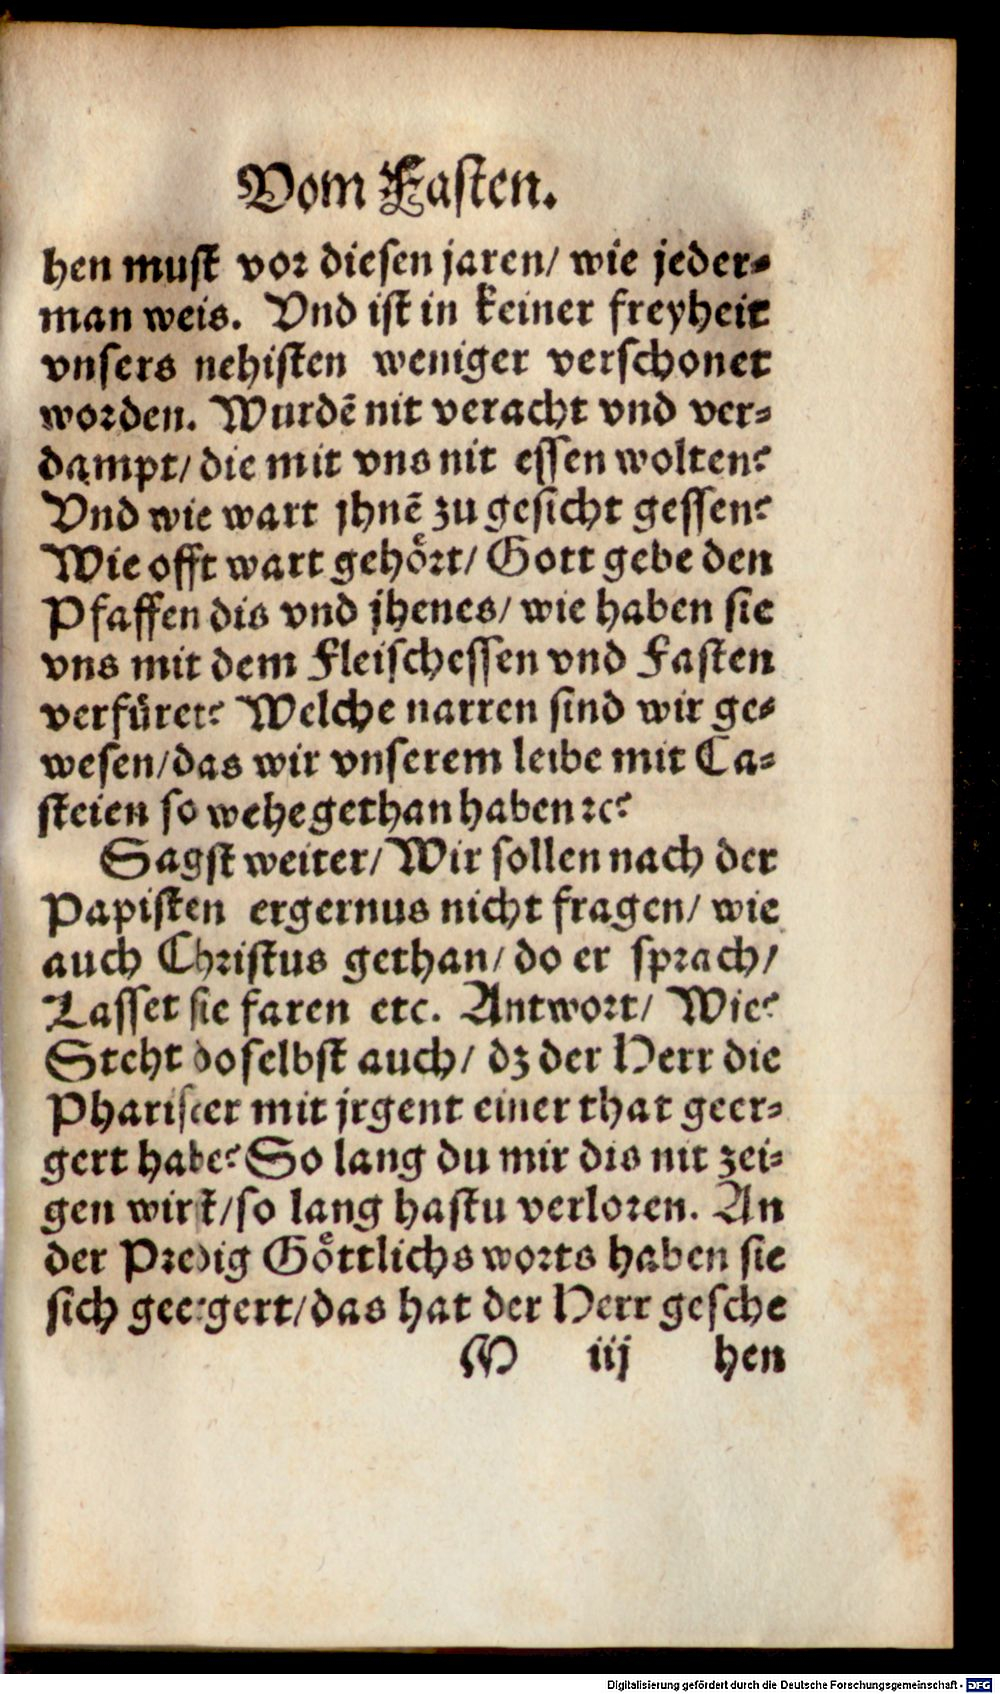 Vom Fasten.
hen must vor diesen jaren/ wie jeder-
man weis. Vnd ist in keiner freyheit
vnsers nehisten weniger verschonet
worden. Wurdē nit veracht vnd ver-
dampt/ die mit vns nit essen wolten?
Vnd wie wart jhnē zu gesicht gessen?
Wie offt wart gehoͤrt/ Gott gebe den
Pfaffen dis vnd jhenes/ wie haben sie
vns mit dem Fleischessen vnd Fasten
verfuͤret? Welche narren sind wir ge-
wesen/das wir vnserem leibe mit Ca-
steien so wehe gethan haben ꝛc?
Sagst weiter/ Wir sollen nach der
Papisten ergernus nicht fragen/ wie
auch Christus gethan/ do er sprach/
Lasset sie faren etc. Antwort/ Wie?
Steht doselbst auch/ dz der Herr die
Phariseer mit jrgent einer that geer-
gert habe? So lang du mir dis nit zei-
gen wirst/so lang hastu verloren. An
der Predig Goͤttlichs worts haben sie
sich geergert/das hat der Herr gesche
M iij hen
Digitalisierung gefördert durch die Deutsche Forschungsgemeinschaft - DFG